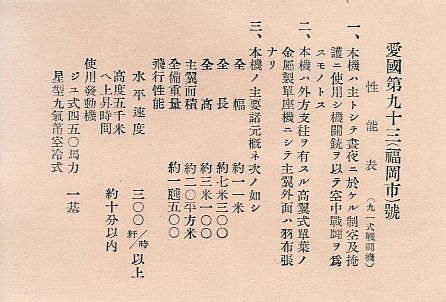 愛國第九十三(福岡市)號
性能表(九一式戰鬪機)
一、本機ハ主トシテ晝夜ニ於ケル制空及掩
護ニ使用シ機關銃ヲ以テ空中戰鬪ヲ爲
スモノトス
二、本機ハ外方支柱ヲ有スル高翼式單葉ノ
金屬製單座機ニシテ主翼外面ハ羽布張
ナリ
三、本機ノ主要諸元概ネ次ノ如シ
全幅 約一一米
全長 約七米三〇〇
全高 約三米一〇〇
主翼面積 約二〇平方米
全備重量 約一瓲五〇〇
飛行性能
水平速度 三〇〇粁/時以上
高度五千米
ヘ上昇時間 約十分以內
使用發動機
ジュ式四五〇馬力 一基
星型九氣筩空冷式